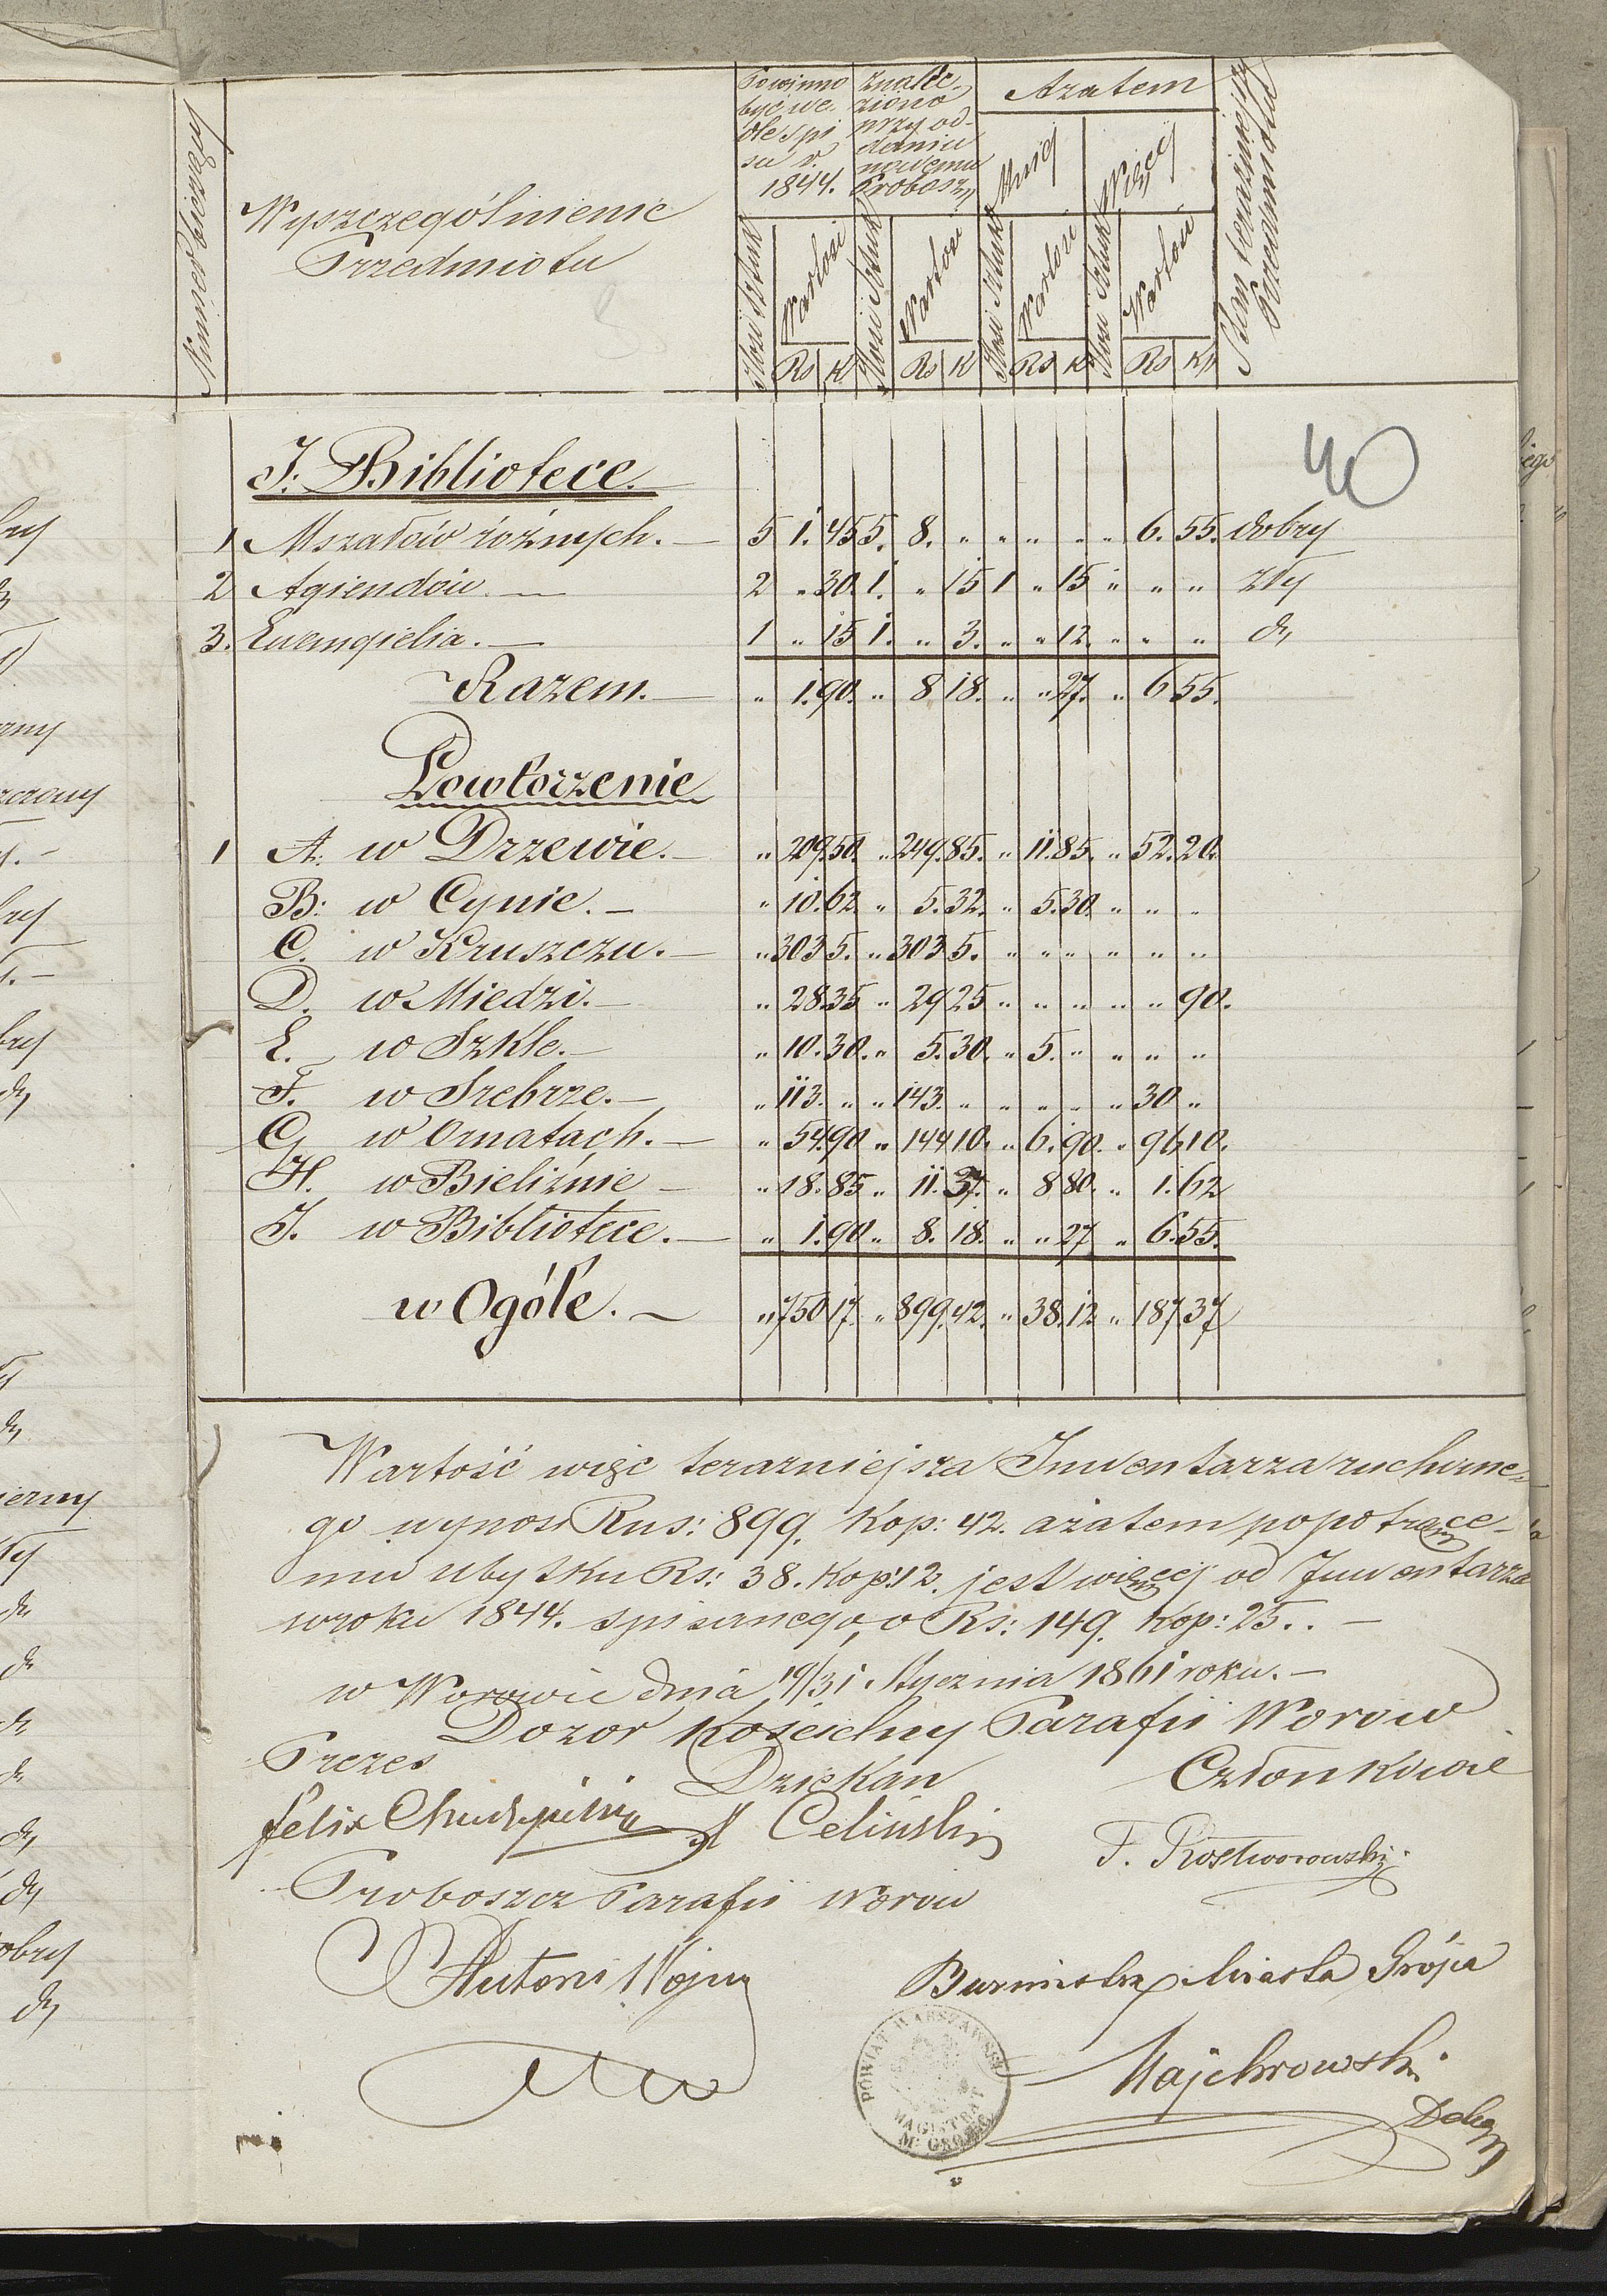 Numer porządkowy
Wyszczególnienie
Przedmiotu
Powinno
być we-
dle spi
su r.
1844.
Znale-
ziono
przy od-
daniu
nowemu
Probosz.
Azatem
Mniej
Więcej
Ilość Sztuk
Wartość
Rs K
Ilość Sztuk
Wartość
Rs K
Ilość Sztuk
Wartość
Rs K
Ilość Sztuk
Wartość
Rs Kp
Stan teraźniejszy
Przedmiotu
40
J. Bibliotece.
1 Mszałów różnych. — 5 1. 45 5. 8. „ „ „ „ „ 6. 55. dobry
2 Agiendów. — 2 „ 30. 1. „ 15 1 „ 15 „ „ „ zły
3. Ewangielia. — 1 „ 15 1. „ 3. „ „ 12. „ „ „ do
Razem. — „ 1. 90. „ 8 18. „ „ 27. „ 6 55.
Powtorzenie
1 A. w Drzewie. — „ 209. 50. „ 249. 85. „ 11. 85. „ 52. 20.
B: w Cynie. — „ 10. 62. „ 5. 32. „ 5. 30. „ „ „
C. w Kruszczu. — „ 303 5. „ 303 5. „ „ „ „ „ „
D. w Miedzi. — „ 28. 35 „ 29 25 „ „ „ „ „ 90.
E. w Szkle. — „ 10. 30. „ 5. 30. „ 5. „ „ „ „
F. w Srebrze. — „ 113. „ „ 143. „ „ „ „ „ 30 „
G w Ornatach. — „ 54. 90 „ 144 10. „ 6. 90. „ 96. 10.
H. w Bieliźnie — „ 18. 85 „ 11. 37. „ 8 80. „ 1. 62
J. w Bibliotece. — „ 1. 90 „ 8. 18. „ „ 27 „ 6. 55.
w Ogóle. — „ 750 17. „ 899. 42. „ 38. 12 „ 187 37
Wartość więc terazniejsza Inwentarza ruchome-
go wynosi Rus: 899. Kop: 42. azatem po potrące-
niu ubytku Rs: 38. Kop: 12. jest więcej od Inwentarza
w roku 1844. spisanego, o Rs: 149. Kop: 25.. —
w Worowie dnia 19/31 Stycznia 1861 roku. —
Dozor Kościelny Parafii Worow
Prezes Dziekan Członkowie
Felix Celiński F. Rostworowski
Proboszcz Parafii Worow
Antoni Wojno
Burmistrz Miasta Grójca
Majchrowski
POWIAT WARSZAWSKI
MAGISTRAT
M. GRÓJEC